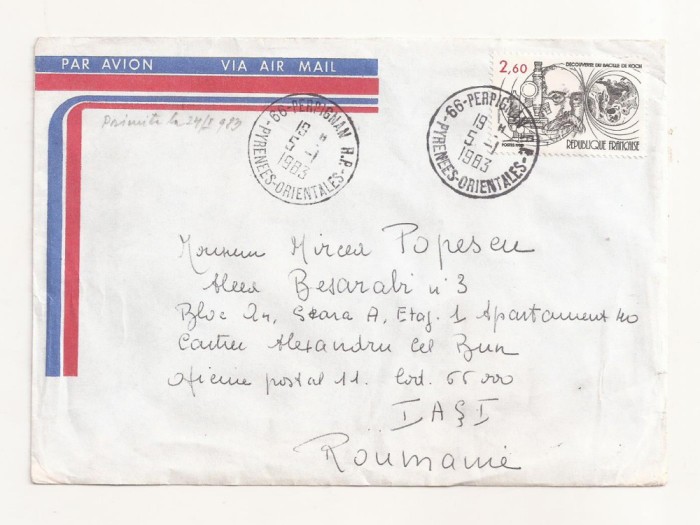 PAR AVION VIA AIR MAIL
2,60 DÉCOUVERTE DU BACILLE DE KOCH
RÉPUBLIQUE FRANÇAISE
Primită la 24/I 983
66-PERPIGNAN R.P.
19 H
5-1
1983
-PYRENEES-ORIENTALES-
66-PERPIGNAN R.P.
19 H
5-1
1983
-PYRENEES-ORIENTALES-
Monsieur Mircea Popescu
Aleea Besarabi n° 3
Bloc 24, Scara A, Etaj. 1 Apartament 40
Cartier Alexandru cel Bun
Oficiu postal 11. Cod. 66 000
IAŞI
Roumanie